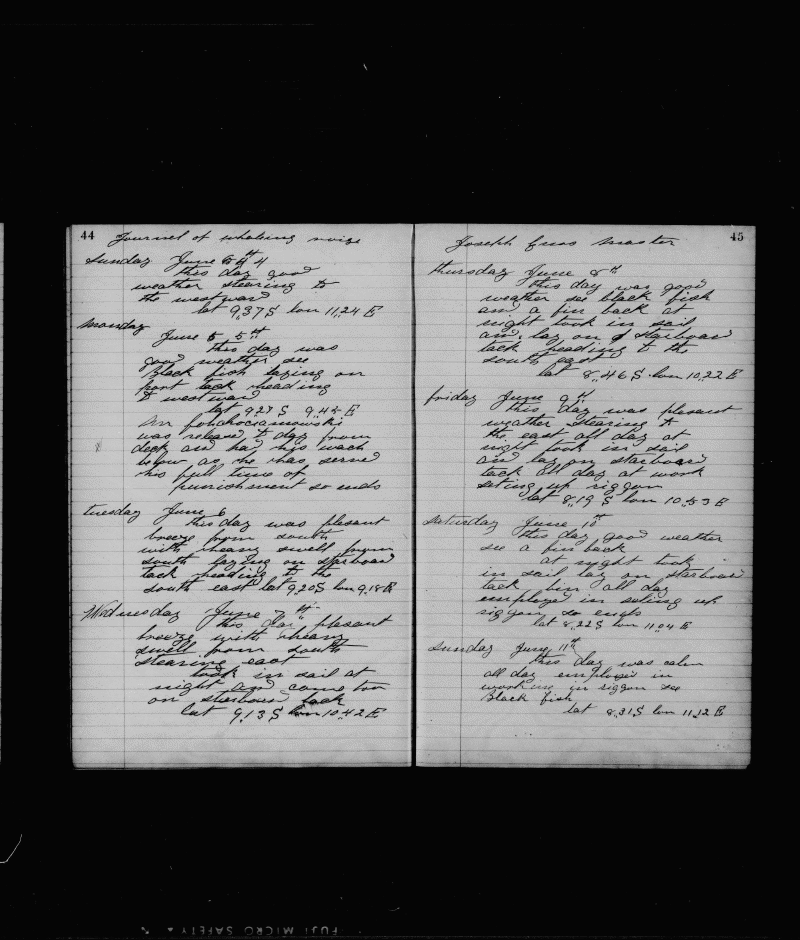 44 Journal of whaling voige
sunday June 4
this day good
weather stearing to
the westward
lat 9,,37 S lon 11,,24 E
monday
June 5th
this day was
good weather see
black fish laying on
port tack heading
to westward
lat 9,,27 S 9,,45 E
was released to day from
deck and had his wach
below as he has served
his full time of
punishment so ends
tuesday June 6
this day was plesant
breeze from south
with heavy swell from
south laying on starboard
tack heading to the
south east lat 9,,20 S lon 9,,18 E
Wednesday June 7th
this day plesant
breeze with heavy
swell from south
stearing east
took in sail at
night and come too
on starboard tack
lat 9,,13 S lon 10,,42 E
Joseph Enos master 45
thursday June 8th
this day was good
weather see black fish
and a fin back at
night took in sail
and lay on starboard
tack heading to the
south east
lat 8,,46 S lon 10,,22 E
friday June 9th
this day was plesant
weather stearing to
the east all day at
night took in sail
and lay on starboard
tack all day at work
seting up riggon
lat 8,,19 S lon 10,,53 E
satuday June 10
this day good weather
see a fin back
at night took
in sail lay on starboard
tack bin all day
employed in seting up
riggon so ends
lat 8,,22 S lon 11,,04 E
sunday June 11th
this day was calm
all day employed in
working in riggon see
black fish
lat 8,,31 S lon 11,,12 E
FUJI MICRO SAFETY